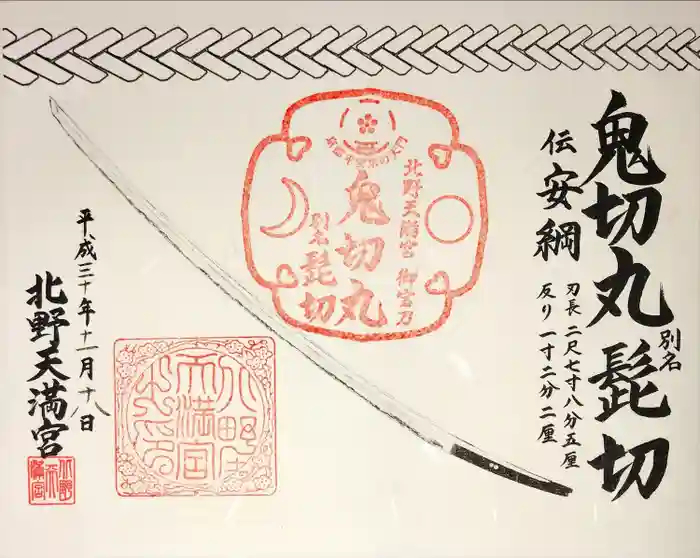 鬼切丸 別名 髭切
伝 安綱
刃長 二尺七寸八分五厘
反り 一寸二分二厘
北野天満宮 御宝刀
鬼切丸
別名 髭切
平成三十年十一月十八日
北野天満宮